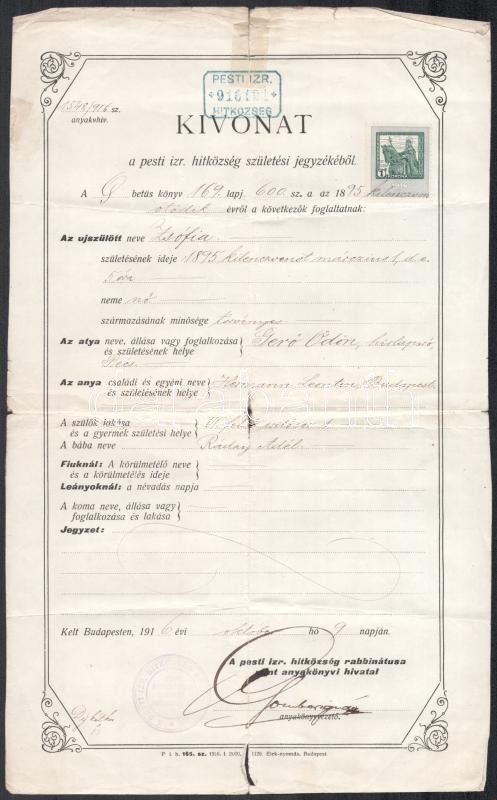 PESTI IZR.
HITKÖZSÉG
1548/916 sz.
anyakvhiv.
KIVONAT
a pesti izr. hitközség születési jegyzékéből.
A G betüs könyv 169. lapj. 600. sz. a az 1895 kilenczven
ötödik évről a következők foglaltatnak:
Az ujszülött neve Zsófia.
születésének ideje 1895 kilenczvenöt márczius 1, d. e.
5 óra
neme nő
származásának minősége törvényes
Az atya neve, állása vagy foglalkozása
és születésének helye
Gerő Ödön, hirlapiró,
Pécs.
Az anya családi és egyéni neve
és születésének helye
Hermann Leontin, Budapest
A szülők lakása
és a gyermek születési helye
A bába neve Raday Adél
Fiuknál: A körülmetélő neve
és a körülmetélés ideje
Leányoknál: a névadás napja
A koma neve, állása vagy
foglalkozása és lakása
Jegyzet:
Kelt Budapesten, 1916 évi október hó 9 napján.
A pesti izr. hitközség rabbinátusa
mint anyakönyvi hivatal
anyakönyvvezető.
P. i. h. 165. sz. 1916. I. 2000. 1120. Elek-nyomda, Budapest.